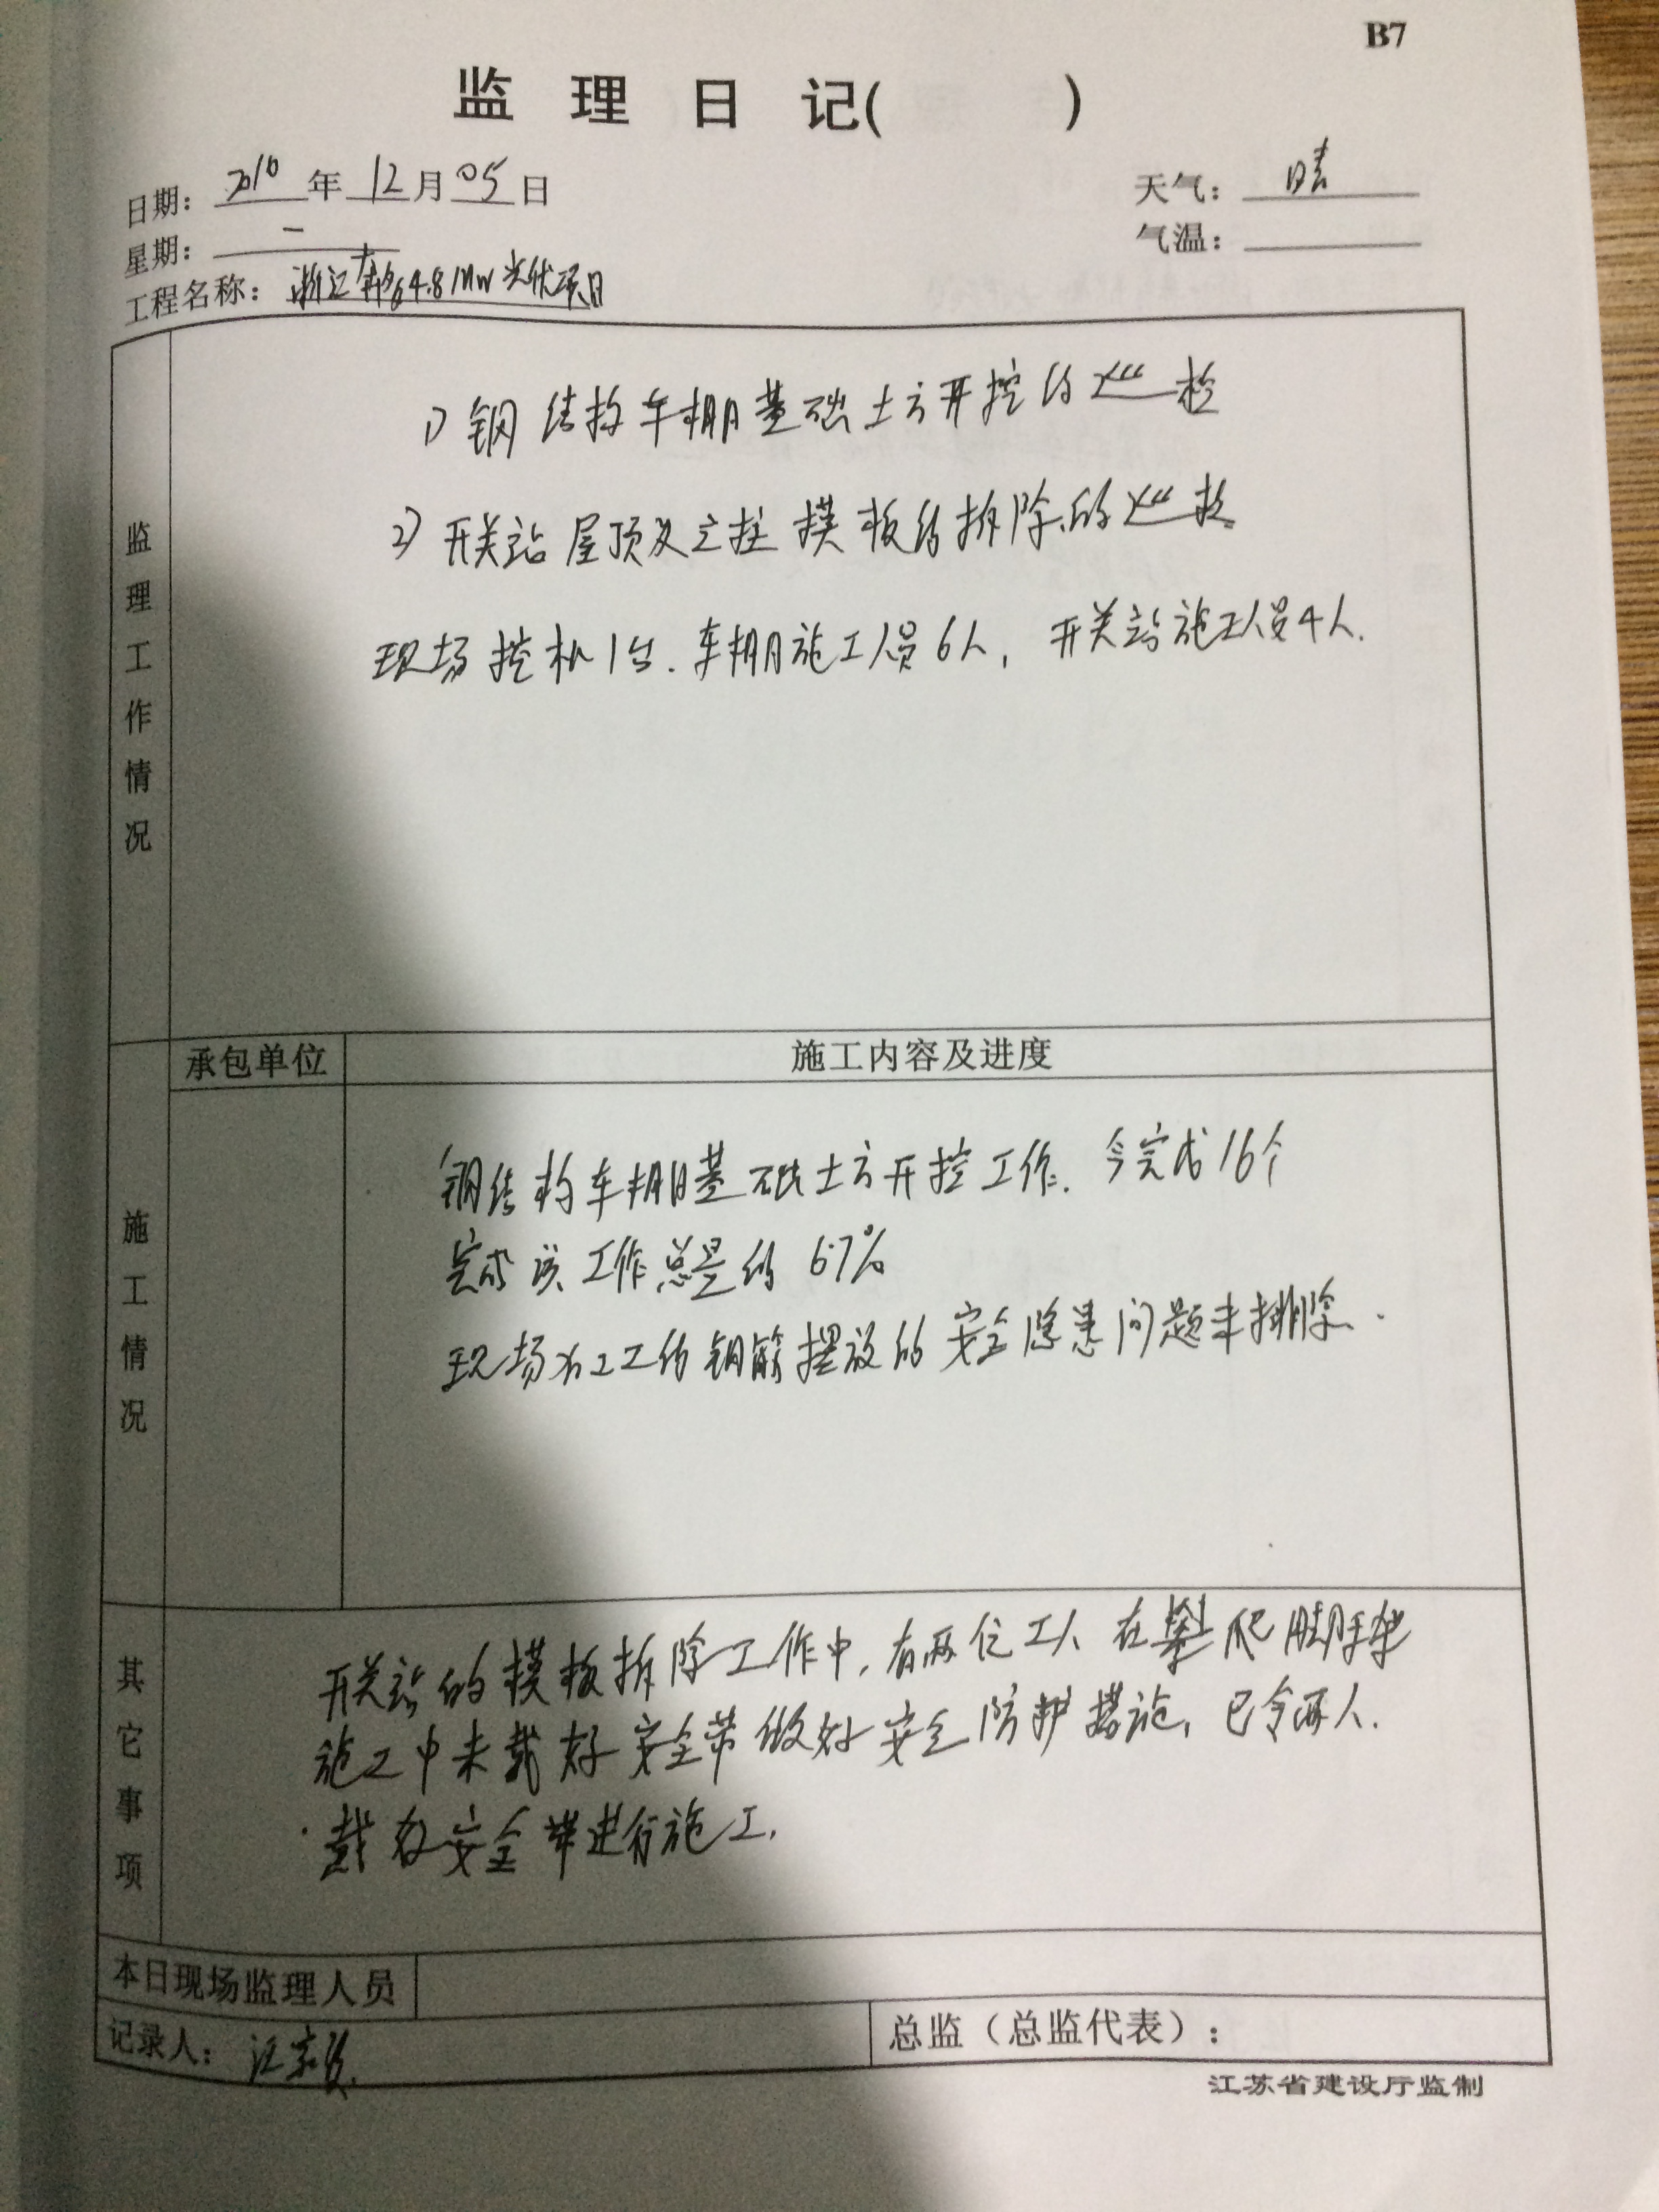 B7
监理日记(　　)
日期：2016年12月05日
天气：晴
星期：一
气温：
工程名称：浙江 4.8MW光伏项目
监理工作情况
1) 钢结构车棚基础土方开挖的巡检
2) 开关站屋顶及立柱模板的拆除的巡检
现场挖机1台．车棚施工人员6人，开关站施工人员4人．
承包单位
施工内容及进度
施工情况
钢结构车棚基础土方开挖工作．今完成16个
完成该工作总量的 67%
现场加工的钢筋摆放的安全隐患问题未排除．
其它事项
开关站的模板拆除工作中，有两位工人在攀爬脚手架
施工中未戴好安全带做好安全防护措施，已令两人．
戴好安全带进行施工，
本日现场监理人员
记录人：汪
总监（总监代表）：
江苏省建设厅监制